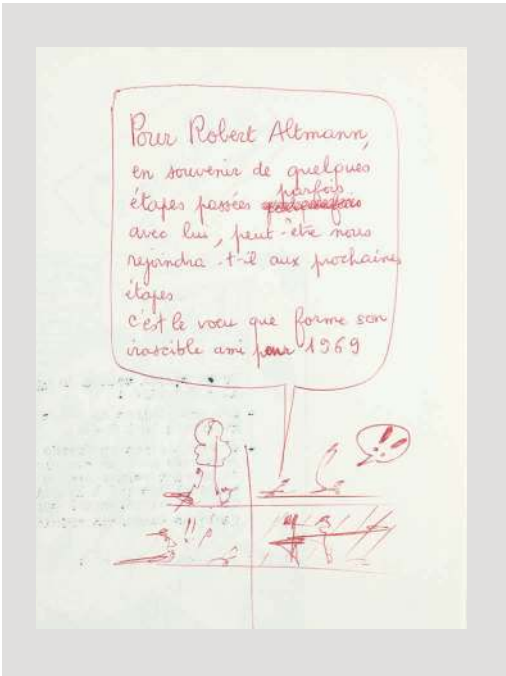 Pour Robert Altmann,
en souvenir de quelques
étapes passées parfois
avec lui, peut-être nous
rejoindra-t-il aux prochaines
étapes
c'est le vœu que forme son
irascible ami pour 1969
!!
!!